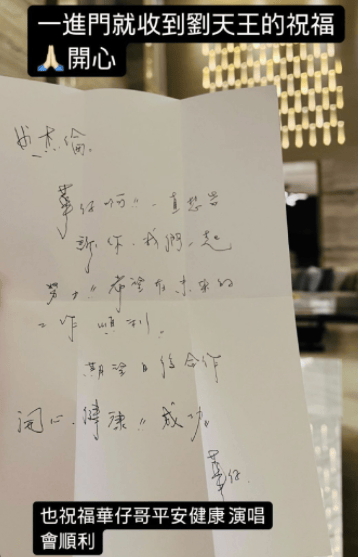 一進門就收到劉天王的祝福
🙏🏻開心
杰倫,
華仔啊!!一直想告
訴你,我們一起
努力!!希望在未來的
工作順利。
期望日後合作
開心、健康!!成功!!
華仔.
也祝福華仔哥平安健康 演唱
會順利